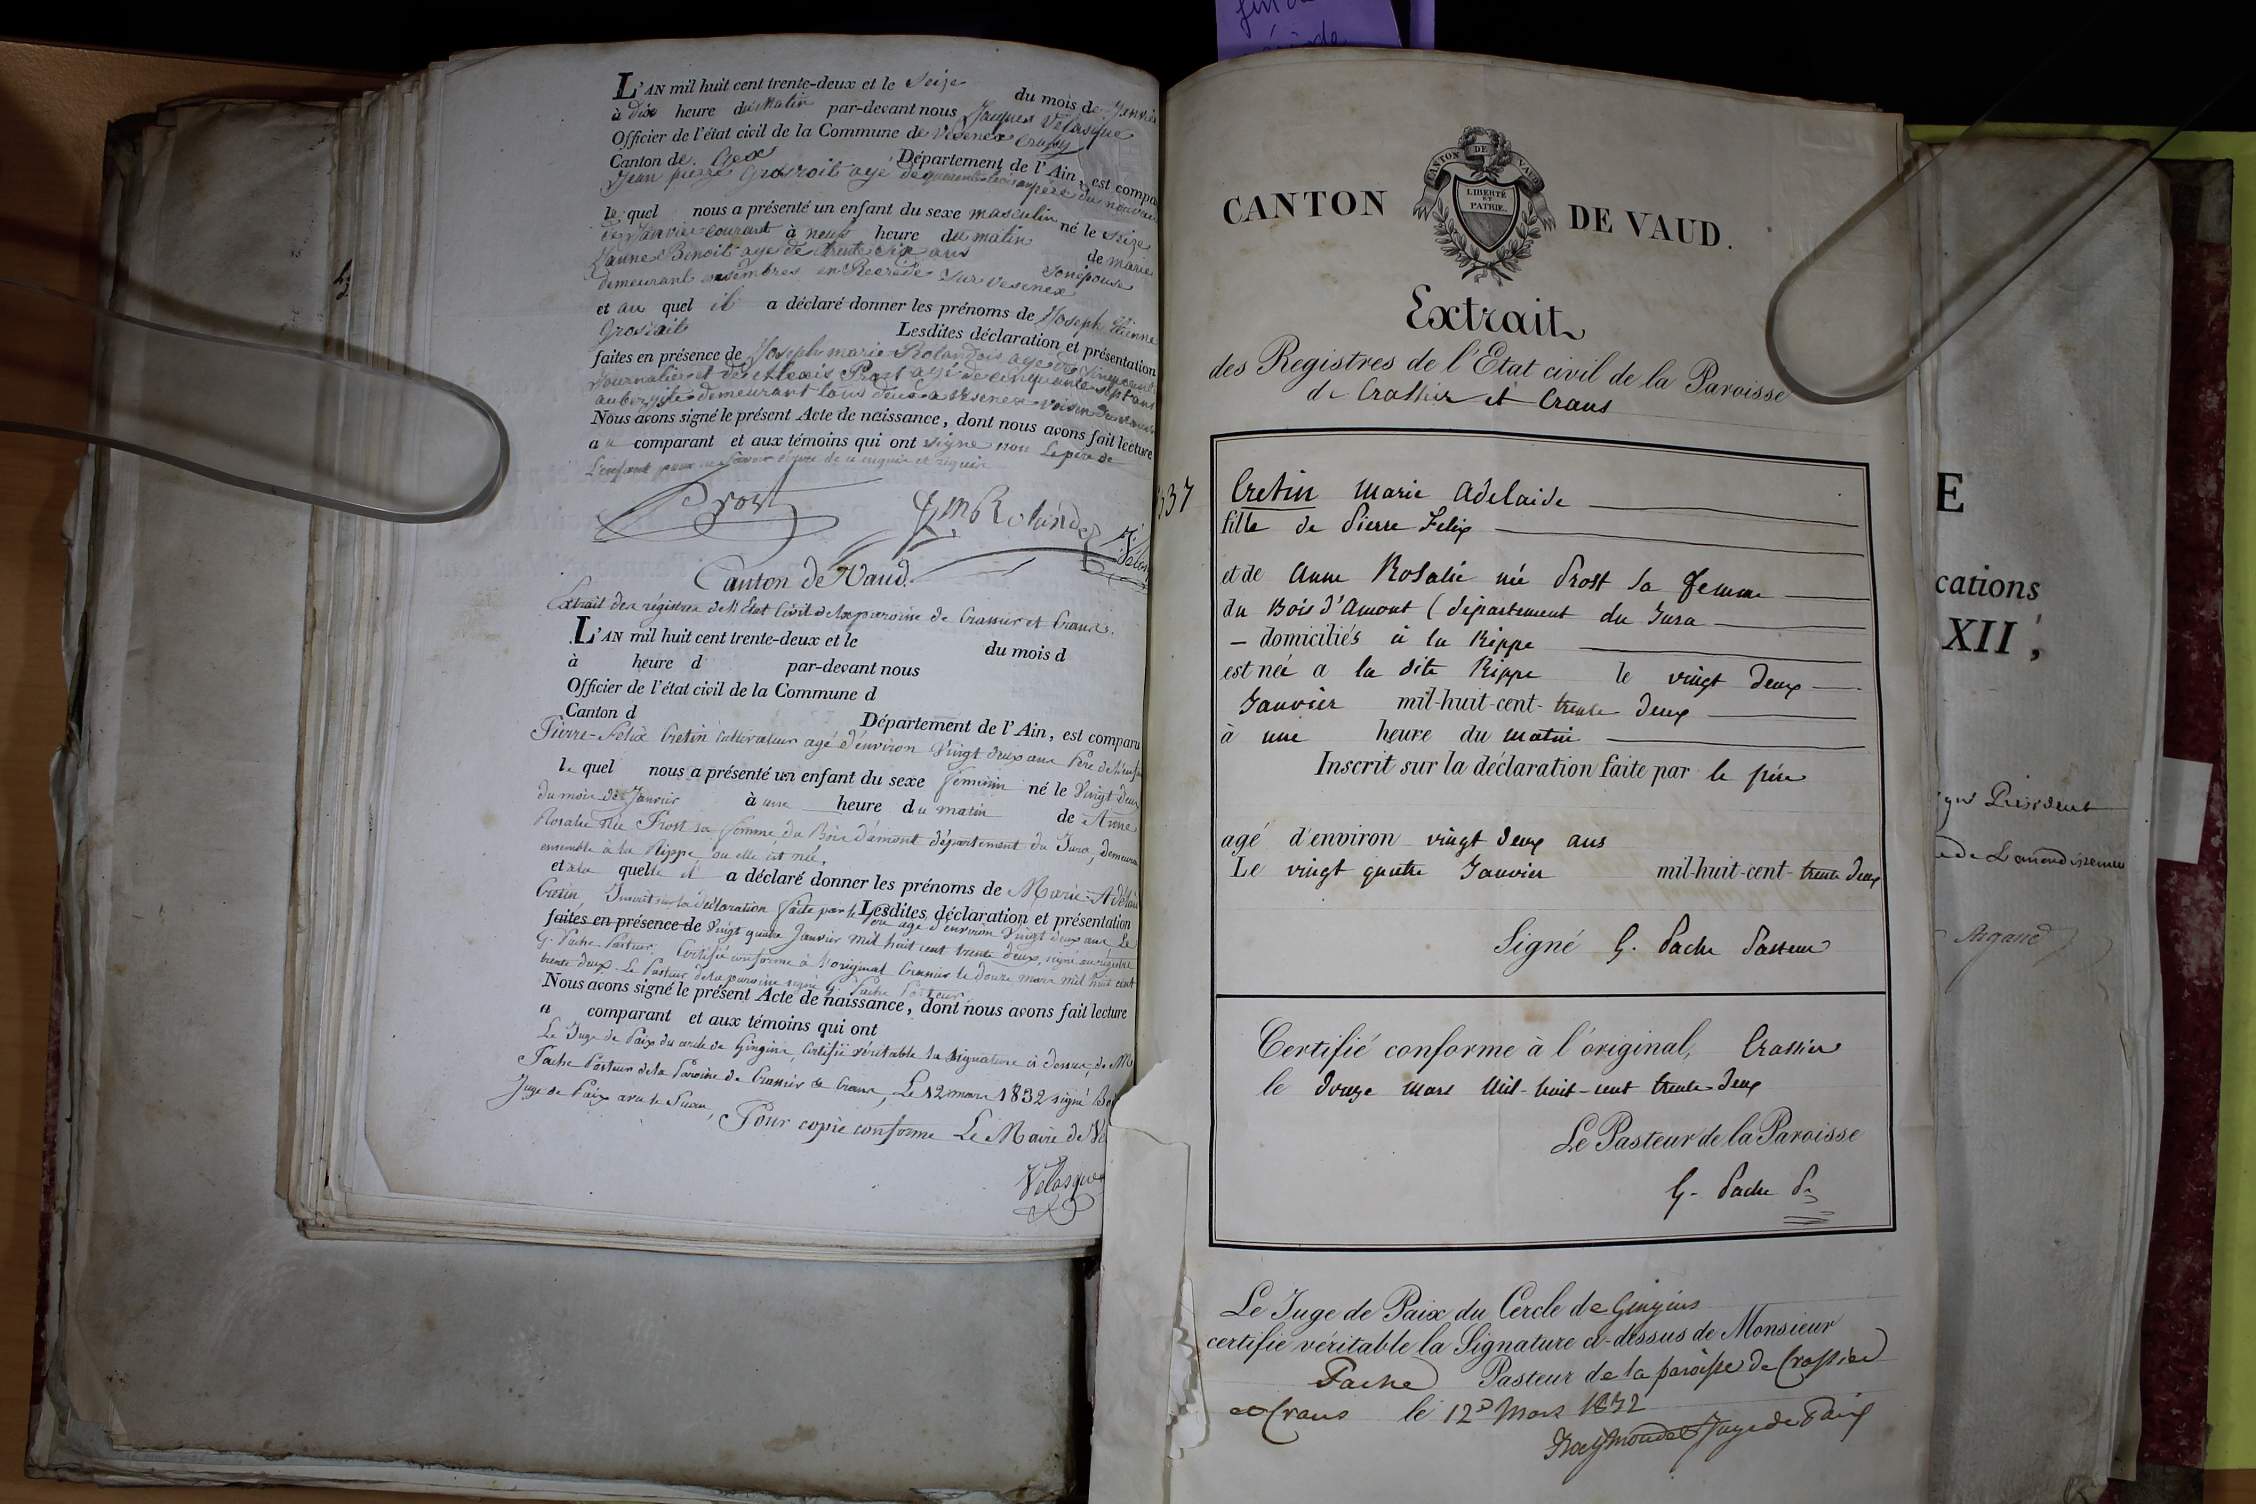 L'AN mil huit cent trente-deux et le Seize du mois de Janvier
à dix heure du Matin par-devant nous Jacques Vélasque
Officier de l'état civil de la Commune de Vesenex Crassy
Canton de Gex Département de l'Ain, est compa
Jean pierre Grosroit agé de père du nouveau
le quel nous a présenté un enfant du sexe masculin né le seize
de Janvier courant à neuf heure du matin de Marie
Jeanne Benoit agé de trente six ans son épouse
demeurant ensembres en sur Vesenex
et au quel il a déclaré donner les prénoms de Joseph Etienne
Lesdites déclaration et présentation
faites en présence de Joseph marie Rolandez agé de
Journalier et de Alexis Prost agé de cinquante sept ans
aubergiste demeurant tous deux a Vesenex
Nous avons signé le présent Acte de naissance, dont nous avons fait lecture
au comparant et aux témoins qui ont signé non le père de
L'enfant pour ne savoir de ce enquis et requis
Prost JmRolandez
Canton de Vaud.
Extrait des régistres de l'Etat Civil de la paroisse de Crassier et Crans.
L'AN mil huit cent trente-deux et le du mois d
à heure d par-devant nous
Officier de l'état civil de la Commune d
Canton d Département de l'Ain, est comparu
Pierre-Felix Cretin cultivateur agé d'environ Vingt deux ans Père de l'enfan
le quel nous a présenté un enfant du sexe féminin né le Vingt-deux
du mois de Janvier à une heure du matin de Anne
Rosalie née Prost sa femme du Bois d'amont département du Jura, demeuran
ensemble à la Rippe, ou elle est née,
et a la quelle il a déclaré donner les prénoms de Marie-Adélaï
Cretin, Inscrit sur la déclaration faite par le Père agé d'environ Vingt deux ans Le
Lesdites déclaration et présentation
faites en présence de Vingt quatre Janvier mil huit cent trente deux, signé au régistre
G. Pache Pasteur. Certifié conforme à l'original Crassier le douze mars mil huit cent
trente deux. Le Pasteur de la paroisse signé G. Pache Pasteur.
Nous avons signé le présent Acte de naissance, dont nous avons fait lecture
a comparant et aux témoins qui ont
Le Juge de Paix du cercle de Gingins, certifie véritable la signature ci dessus de M
Pache Pasteur de la Paroisse de Crassier & Crans, Le 12 mars 1832 signé
Juge de Paix avec le Sceau,
Pour copie conforme Le Maire de Ve
Vélasque
CANTON DE VAUD
LIBERTÉ
ET
PATRIE.
CANTON DE VAUD.
Extrait
des Registres de l'Etat civil de la Paroisse
de Crassier et Crans
37
Cretin Marie Adelaide
fille de Pierre Felix
et de Anne Rosalie née Prost sa femme
du Bois d'Amont (département du Jura
domiciliés à la Rippe
est née a la dite Rippe le vingt deux
Janvier mil-huit-cent-trente deux
à une heure du matin
Inscrit sur la déclaration faite par le père
agé d'environ vingt deux ans
Le vingt quatre Janvier mil-huit-cent-trente deux
Signé G. Pache Pasteur
Certifié conforme à l'original, Crassier
le douze mars Mil-huit-cent trente-deux
Le Pasteur de la Paroisse
G. Pache Pr
Le Juge de Paix du Cercle de Gingins
certifie véritable la Signature ci-dessus de Monsieur
Pache Pasteur de la paroisse de Crassier
et Crans le 12 Mars 1832
Juge de Paix
E
cations
XII,
Président